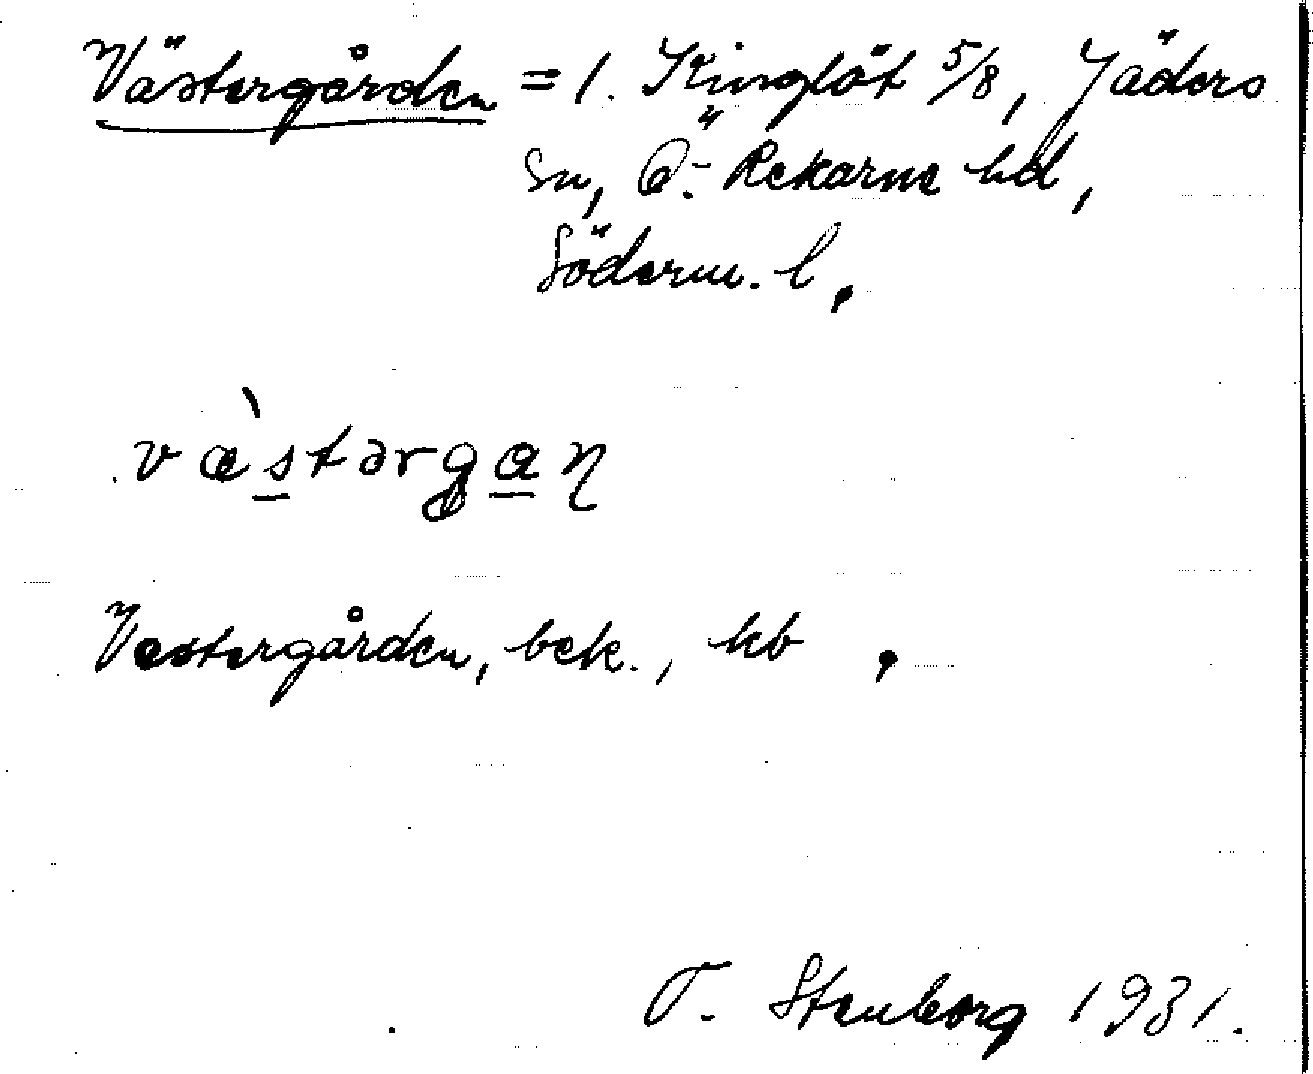 Västergården = 1. Kinglöt 5/8, Jäders
sn, Ö.- Rekarne hd,
Söderm. l.
væ̀stərgaɳ
Vestergården, bek., kb.
T. Stenborg 1931.